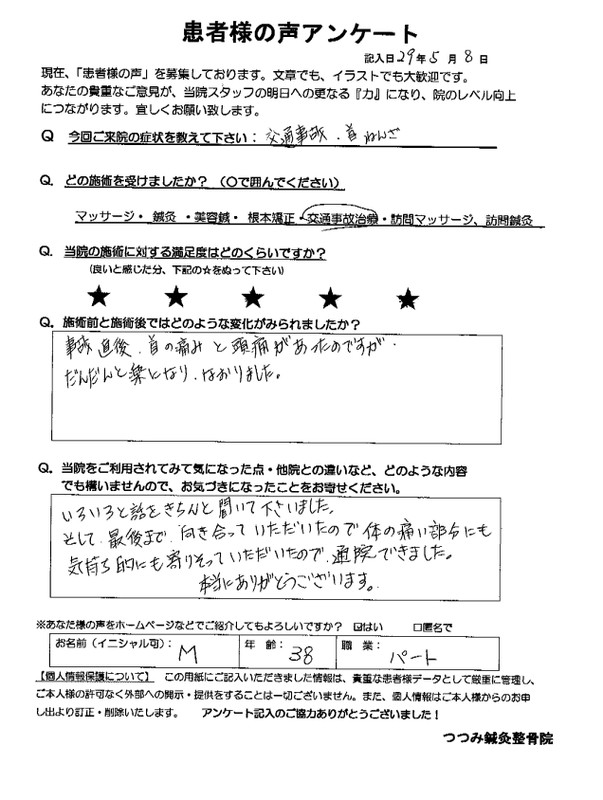 患者様の声アンケート
記入日29年5月8日
現在、「患者様の声」を募集しております。文章でも、イラストでも大歓迎です。
あなたの貴重なご意見が、当院スタッフの明日への更なる『力』になり、院のレベル向上
につながります。宜しくお願い致します。
Q 今回ご来院の症状を教えて下さい：交通事故．首ねんざ
Q. どの施術を受けましたか？（〇で囲んでください）
マッサージ・ 鍼灸 ・美容鍼・ 根本矯正・交通事故治療・訪問マッサージ、訪問鍼灸
Q. 当院の施術に対する満足度はどのくらいですか？
（良いと感じた分、下記の☆をぬって下さい）
★ ★ ★ ★ ★
Q. 施術前と施術後ではどのような変化がみられましたか？
事故直後．首の痛みと頭痛があったのですが．
だんだんと楽になり．なおりました。
Q. 当院をご利用されてみて気になった点・他院との違いなど、どのような内容
でも構いませんので、お気づきになったことをお寄せください。
いろいろと話をきちんと聞いて下さいました。
そして．最後まで．向き合っていただいたので体の痛い部分にも
気持ち的にも寄りそっていただいたので．通院できました。
本当にありがとうございます。
※あなた様の声をホームページなどでご紹介してもよろしいですか？ ☑はい □匿名で
お名前（イニシャル可）： M 年 齢： 38 職 業： パート
【個人情報保護について】 この用紙にご記入いただきました情報は、貴重な患者様データとして厳重に管理し、
ご本人様の許可なく外部への開示・提供をすることは一切ございません。また、個人情報はご本人様からのお申
し出より訂正・削除いたします。 アンケート記入のご協力ありがとうございました！
つつみ鍼灸整骨院